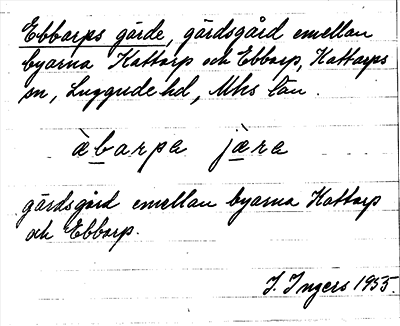 Ebbarps gärde, gärdsgård emellan
byarna Kattarp och Ebbarp, Kattarps
sn, Luggude hd, Mhs län.
àbarpa jæra
gärdsgård emellan byarna Kattarp
och Ebbarp.
I. Ingers 1955.